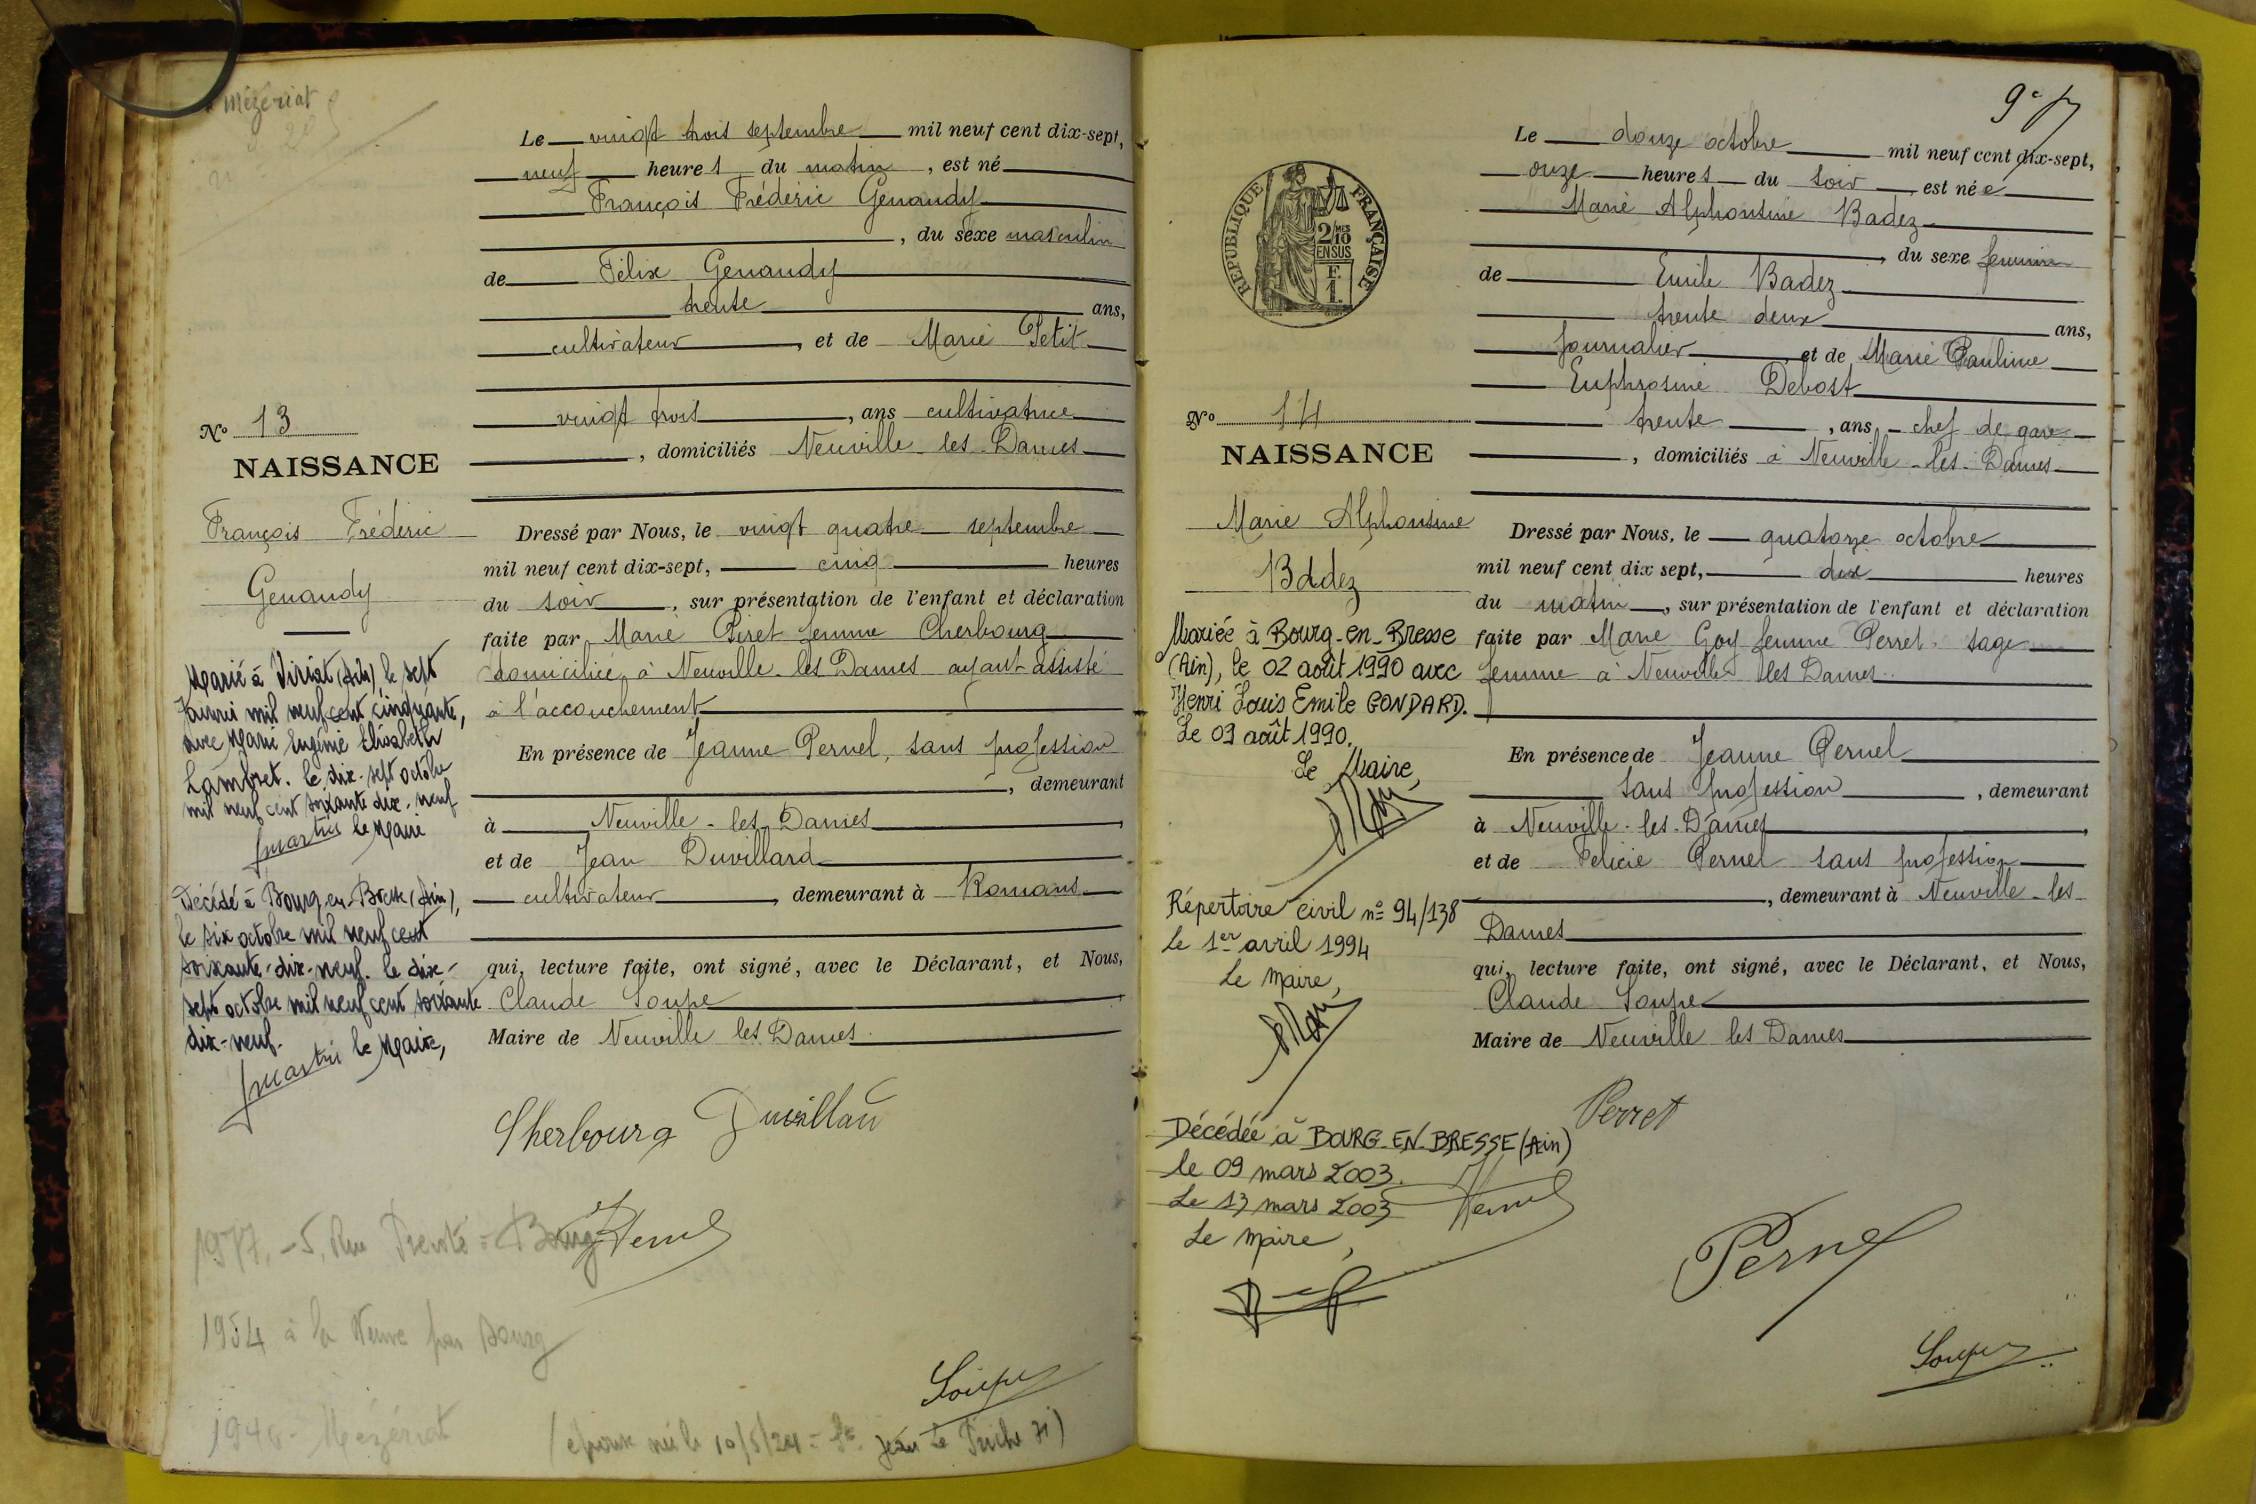 Mézériat
Le vingt trois septembre mil neuf cent dix-sept,
neuf heures du matin, est né
François Frédéric Genaudy
, du sexe masculin
de Félix Genaudy
trente ans,
cultivateur, et de Marie Petit
vingt trois, ans cultivatrice
, domiciliés Neuville les Dames
N° 13
NAISSANCE
François Frédéric
Genaudy
Dressé par Nous, le vingt quatre septembre
mil neuf cent dix-sept, cinq heures
du soir, sur présentation de l'enfant et déclaration
faite par Marie Piret femme Cherbourg
domiciliée à Neuville les Dames ayant assisté
à l'accouchement
En présence de Jeanne Pernel, sans profession
, demeurant
à Neuville-les-Dames
et de Jean Duvillard
cultivateur, demeurant à Romans
qui, lecture faite, ont signé, avec le Déclarant, et Nous,
Claude Soupe
Maire de Neuville les Dames
Marié à Viriat (Ain) le sept
mil neuf cent cinquante,
avec Marie Eugénie Elisabeth
Lambret. le dix-sept octobre
mil neuf cent soixante dix-neuf
le Maire
Décédé à Bourg-en-Bresse (Ain),
le six octobre mil neuf cent
soixante-dix-neuf. le dix-
sept octobre mil neuf cent soixante
dix-neuf.
le Maire,
Cherbourg Duvillard
Pernel
1977. - 5, Rue = Bourg
1954 à la par Bourg
1940 - Mézériat
Soupe
9e
Le douze octobre mil neuf cent dix-sept,
onze heures du soir, est née
Marie Alphonsine Badez
, du sexe féminin
de Emile Badez
trente deux ans,
journalier et de Marie Pauline
Euphrosine Debost
trente, ans, chef de gare
, domiciliés à Neuville-les-Dames
RÉPUBLIQUE FRANÇAISE
2/10MES
EN SUS
F.
1.
N° 14
NAISSANCE
Marie Alphonsine
Badez
Dressé par Nous, le quatorze octobre
mil neuf cent dix sept, dix heures
du matin, sur présentation de l'enfant et déclaration
faite par Marie Goy femme Perret sage
femme à Neuville les Dames
En présence de Jeanne Pernel
sans profession, demeurant
à Neuville-les-Dames
et de Félicie Pernel sans profession
, demeurant à Neuville-les-
Dames
qui, lecture faite, ont signé, avec le Déclarant, et Nous,
Claude Soupe
Maire de Neuville les Dames
Mariée à Bourg-en-Bresse
(Ain), le 02 août 1990 avec
Henri Louis Emile GONDARD.
Le 03 août 1990.
Le Maire,
Répertoire civil n° 94/138
Le 1er avril 1994
Le Maire,
Décédée à BOURG-EN-BRESSE (Ain)
le 09 mars 2003.
Le 13 mars 2003
Le Maire,
Perret
Pernel
Pernel
Soupe